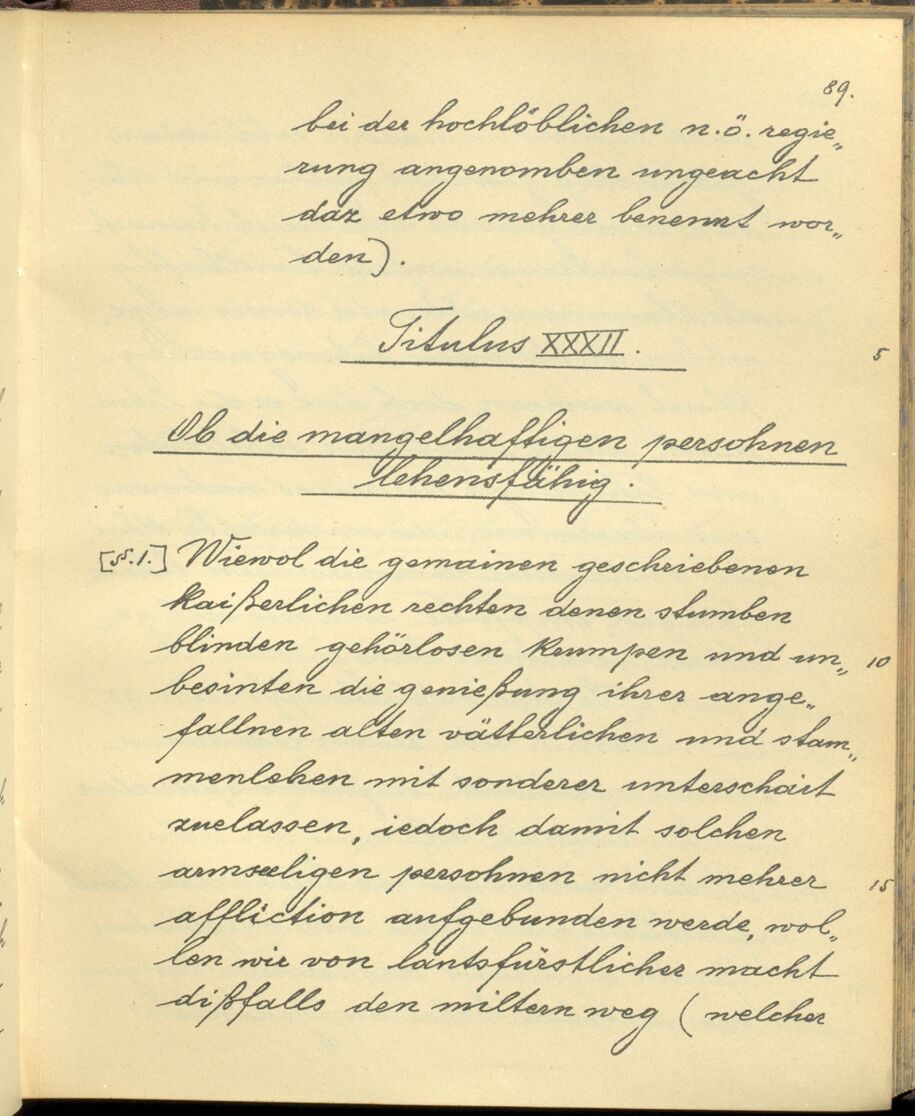 89.
bei der hochlöblichen n.ö. regie„
rung angenomben ungeacht
daz etwo mehrer benennt wor„
den).
Titulus XXXII.
5
Ob die mangelhafftigen persohnen
lehensfähig.
[§.1.] Wiewol die gemainen geschriebenen
kaißerlichen rechten denen stumben
blinden gehörlosen krumpen und un„
10
besinten die genießung ihrer ange„
fallnen alten vätterlichen und stam„
menlehen mit sonderer unterschait
zuelassen, iedoch damit solchen
armseeligen persohnen nicht mehrer
15
affliction aufgebunden werde, wol„
len wir von lantsfürstlicher macht
dißfalls den miltern weg (welcher